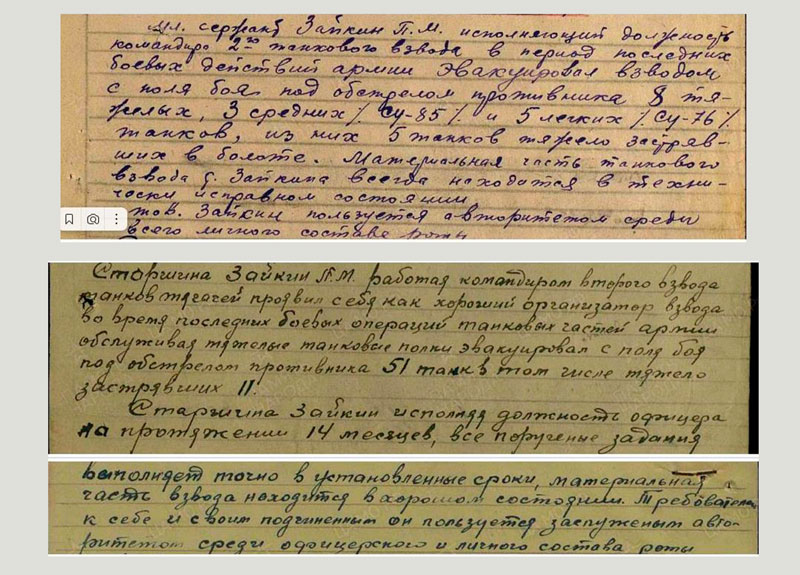 мл. сержант Зайкин П.М. исполняющий должность
командира 2го танкового взвода в период последних
боевых действий армии эвакуировал взводом
с поля боя под обстрелом противника 8 тя-
желых, 3 средних /Су-85/ и 5 легких /Су-76/
танков, из них 5 танков тяжело застряв-
ших в болоте. Материальная часть танкового
взвода т. Зайкина всегда находится в техни-
чески исправном состоянии
тов. Зайкин пользуется авторитетом среди
всего личного состава роты
Старшина Зайкин П.М. работая командиром второго взвода
танков тягачей проявил себя как хороший организатор взвода
Во время последних боевых операций танковых частей армии
обслуживая тяжелые танковые полки эвакуировал с поля боя
под обстрелом противника 51 танк в том числе тяжело
застрявших 11.
Старшина Зайкин исполняя должность офицера
на протяжении 14 месяцев, все порученые задания
выполняет точно в установленные сроки, материальная
часть взвода находится в хорошом состоянии. Требователен
к себе и своим подчиненным он пользуется заслуженым авто-
ритетом среди офицерского и личного состава роты